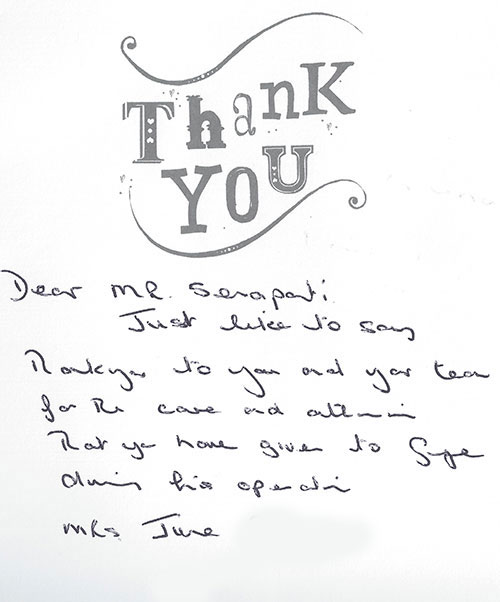 Thank
YOU
Dear MR. Senapati.
Just like to say
Thankyou to you and your team
for the care and attention
that you have given to
during his operation
MRs June